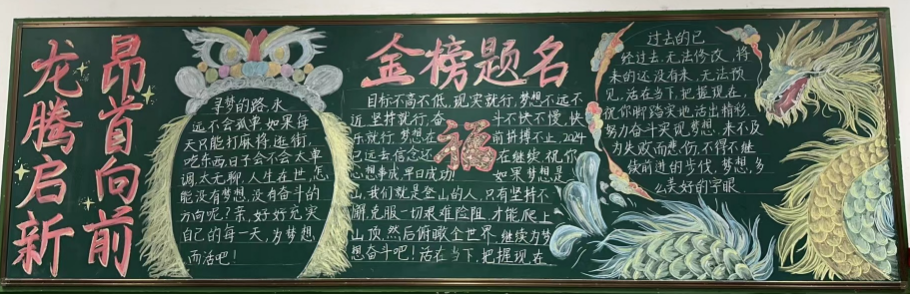 龙腾启新
昂首向前
寻梦的路,永
远不会孤单,如果每
天只能打麻将,逛街,
吃东西,日子会不会太单
调,太无聊,人生在世,怎
能没有梦想,没有奋斗的
方向呢?亲,好好充实
自己的每一天,为梦想
而活吧!
金榜题名
福
目标不高不低,现实就行,梦想不远不
近,坚持就行,奋斗不快不慢,快
乐就行,梦想在前拼搏不止,2024
已远去信念还在继续,祝你
心想事成,早日成功!如果梦想是
山,我们就是登山的人,只有坚持不
懈,克服一切艰难险阻,才能爬上
山顶,然后俯瞰全世界,继续为梦
想奋斗吧!活在当下,把握现在
过去的已
经过去,无法修改,将
来的还没有来,无法预
见,活在当下,把握现在,
祝你脚踏实地,活出精彩,
努力奋斗实现梦想,来不及
为失败而悲伤,不得不继
续前进的步伐,梦想,多
么美好的字眼